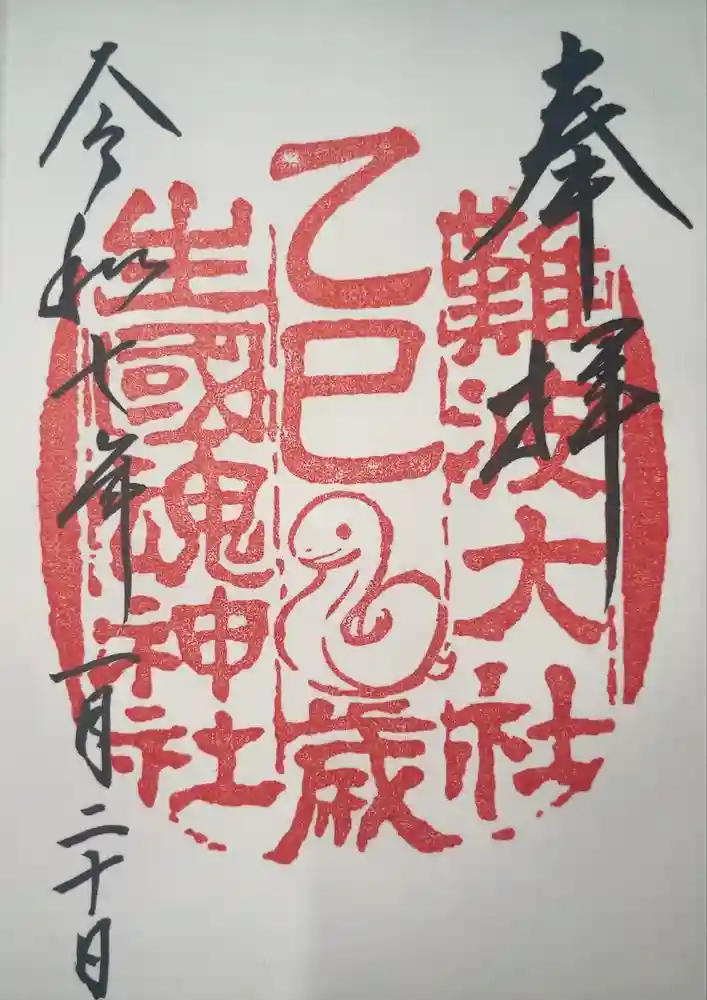 奉拝
難波大社
乙巳歳
生國魂神社
令和七年一月二十日